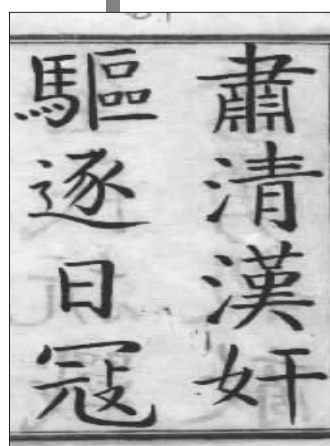 肅清漢奸
驅逐日冦